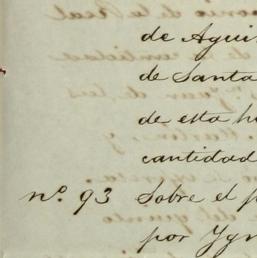 de Agui
de Santa
de esta h
cantidad
nº. 93 Sobre el p
por Ygn